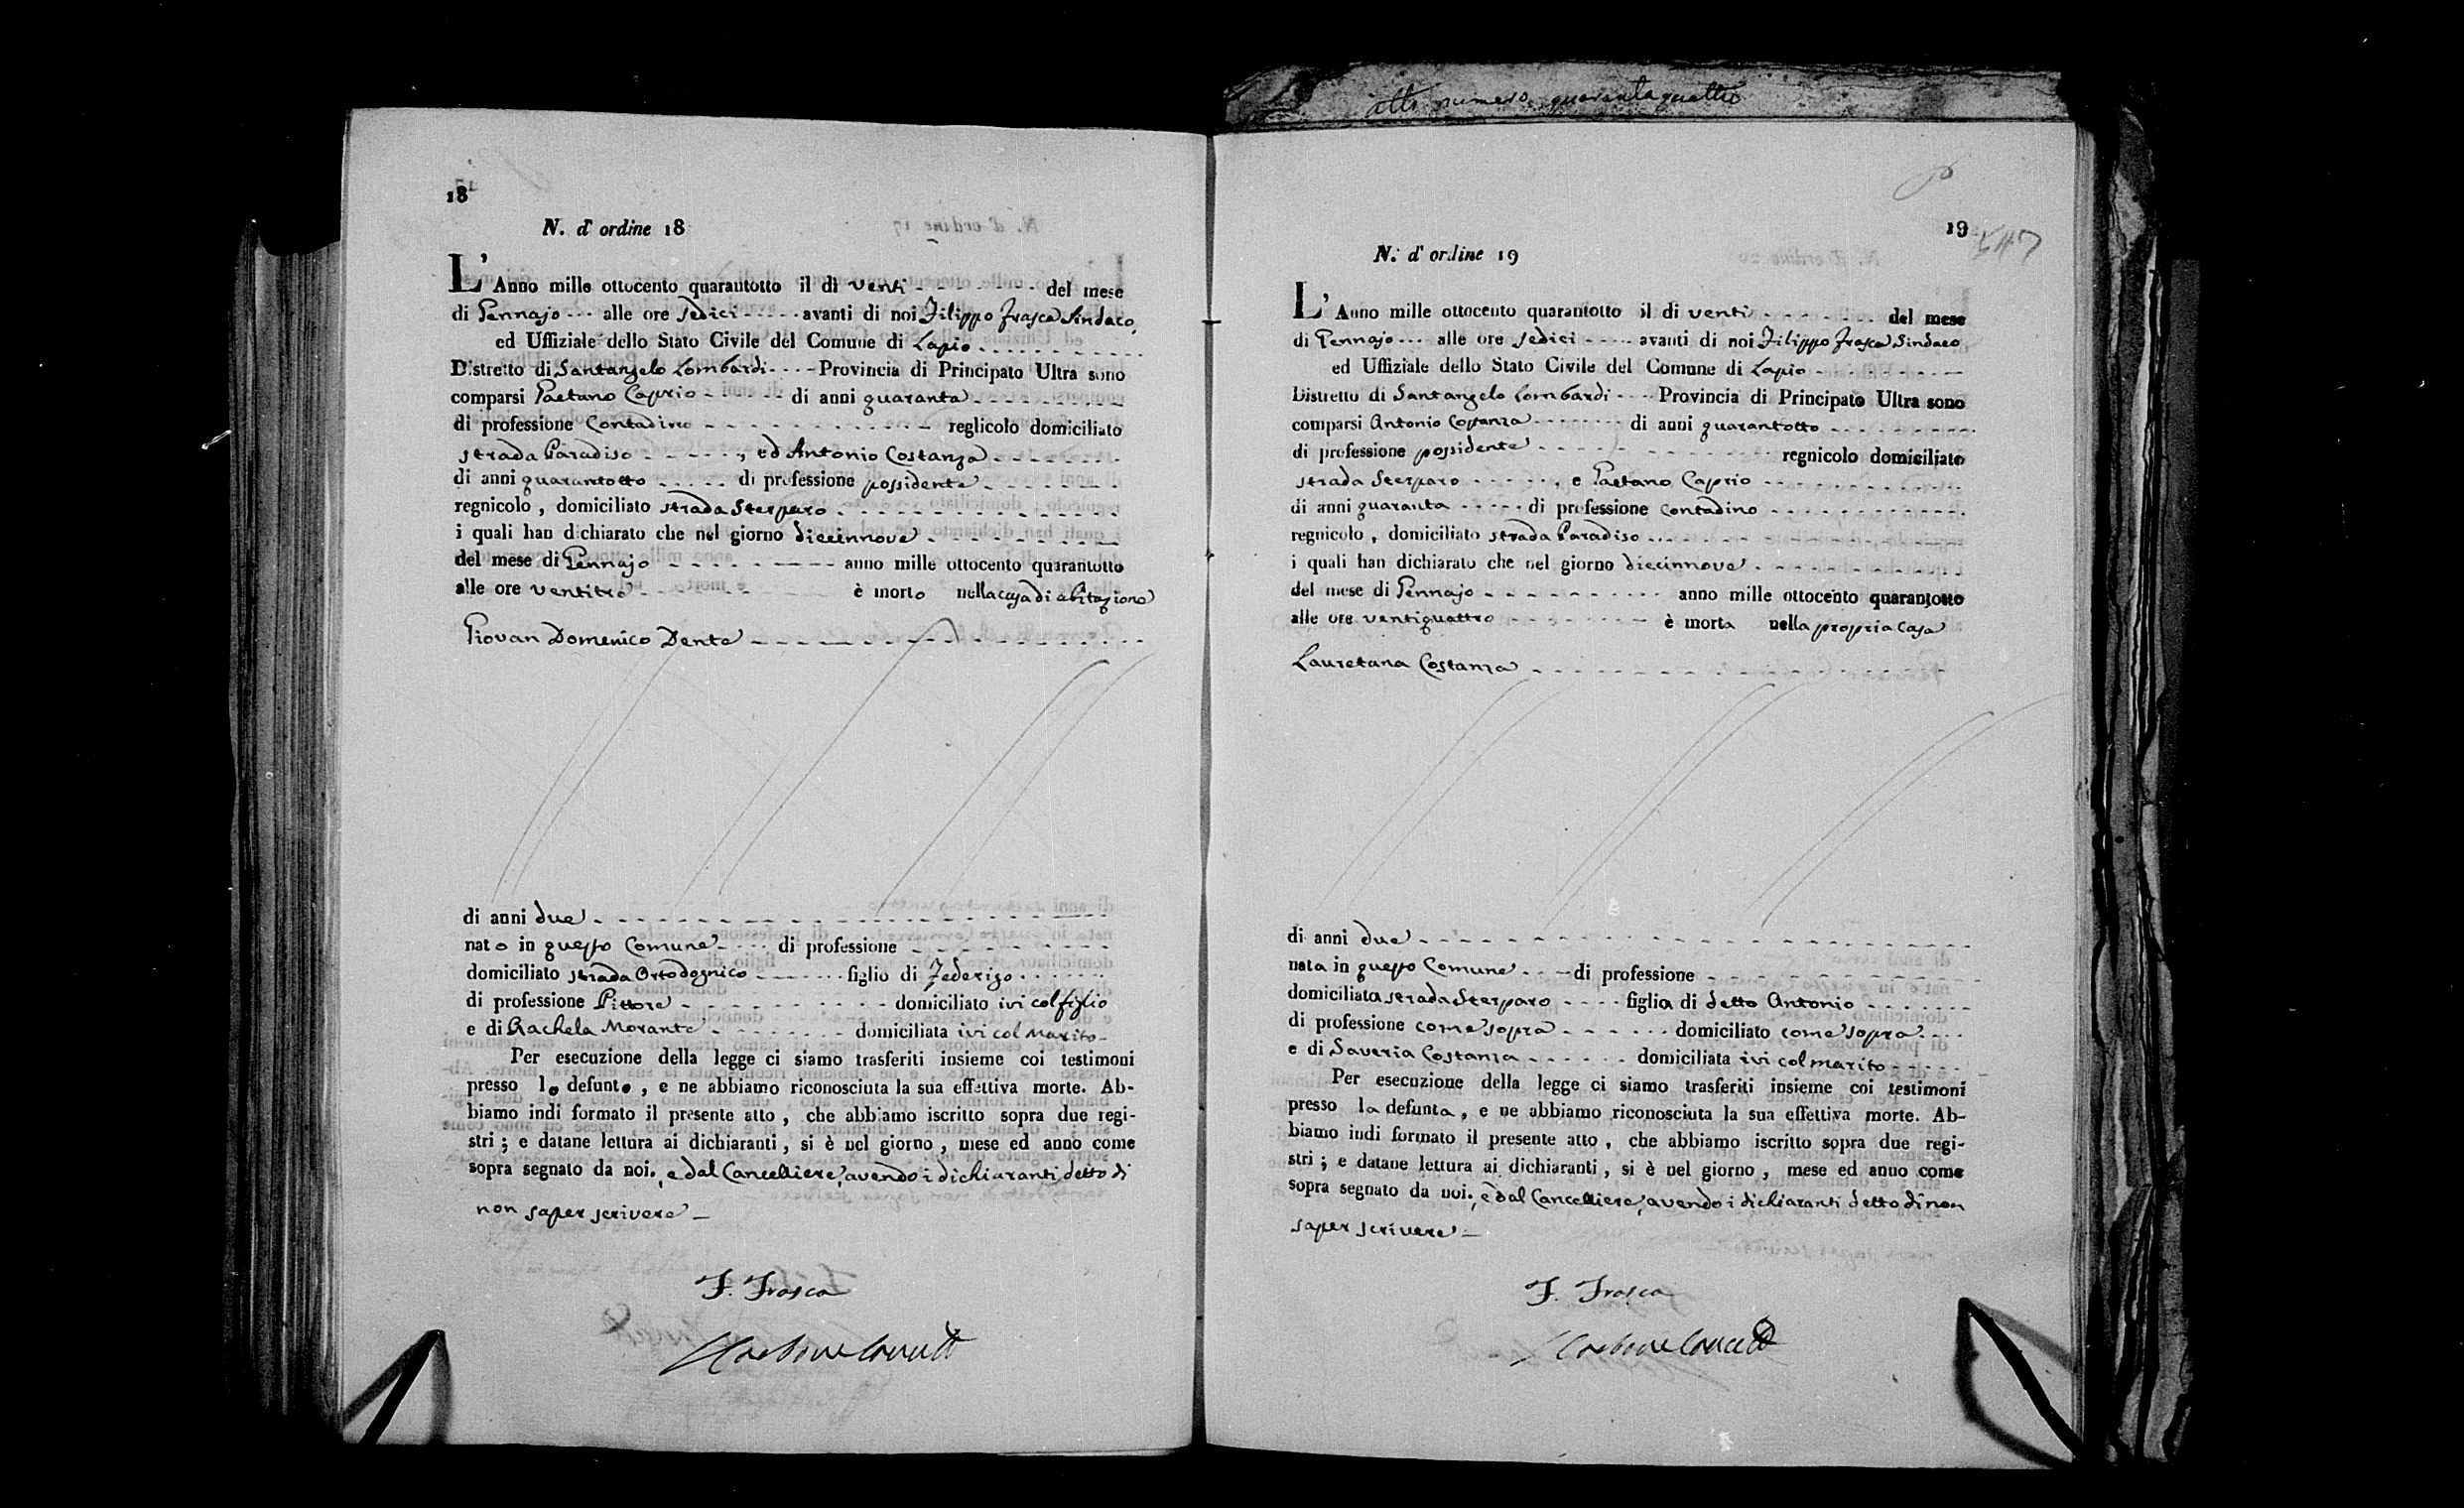 18
N. d' ordine 18
L' Anno mille ottocento quarantotto il dì venti del mese
di Gennajo alle ore sedici avanti di noi Filippo Frasca Sindaco
ed Uffiziale dello Stato Civile del Comune di Lapio
Distretto di Santangelo Lombardi Provincia di Principato Ultra sono
comparsi Gaetano Caprio di anni quaranta
di professione Contadino reglicolo domiciliato
strada Paradiso, ed Antonio Costanza
di anni quarantotto di professione possidente
regnicolo, domiciliato strada Sterparo
i quali han dichiarato che nel giorno diecinnove
del mese di Gennajo anno mille ottocento quarantotto
alle ore ventitre è morto nella casa di abitazione
Giovan Domenico Dente
di anni due
nato in questo Comune di professione
domiciliato strada Ortodognico figlio di Federigo
di professione Pittore domiciliato ivi col figlio
e di Rachela Morante domiciliata ivi col marito
Per esecuzione della legge ci siamo trasferiti insieme coi testimoni
presso lo defunto, e ne abbiamo riconosciuta la sua effettiva morte. Ab-
biamo indi formato il presente atto, che abbiamo iscritto sopra due regi-
stri; e datane lettura ai dichiaranti, si è nel giorno, mese ed anno come
sopra segnato da noi, e dal Cancelliere, avendo i dichiaranti detto di
non saper scrivere
F. Frasca
atto numero quarantaquattro
19
547
N. d' ordine 19
L' Anno mille ottocento quarantotto il dì venti del mese
di Gennajo alle ore sedici avanti di noi Filippo Frasca Sindaco
ed Uffiziale dello Stato Civile del Comune di Lapio
Distretto di Santangelo Lombardi Provincia di Principato Ultra sono
comparsi Antonio Costanza di anni quarantotto
di professione possidente regnicolo domiciliato
strada Sterparo, e Gaetano Caprio
di anni quaranta di professione Contadino
regnicolo, domiciliato strada Paradiso
i quali han dichiarato che nel giorno diecinnove
del mese di Gennajo anno mille ottocento quarantotto
alle ore ventiquattro è morta nella propria casa
Lauretana Costanza
di anni due
nata in questo Comune di professione
domiciliata strada Sterparo figlia di detto Antonio
di professione come sopra domiciliato come sopra
e di Saveria Costanza domiciliata ivi col marito
Per esecuzione della legge ci siamo trasferiti insieme coi testimoni
presso la defunta, e ne abbiamo riconosciuta la sua effettiva morte. Ab-
biamo indi formato il presente atto, che abbiamo iscritto sopra due regi-
stri; e datane lettura ai dichiaranti, si è nel giorno, mese ed anno come
sopra segnato da noi, e dal Cancelliere, avendo i dichiaranti detto di non
saper scrivere
F. Frasca